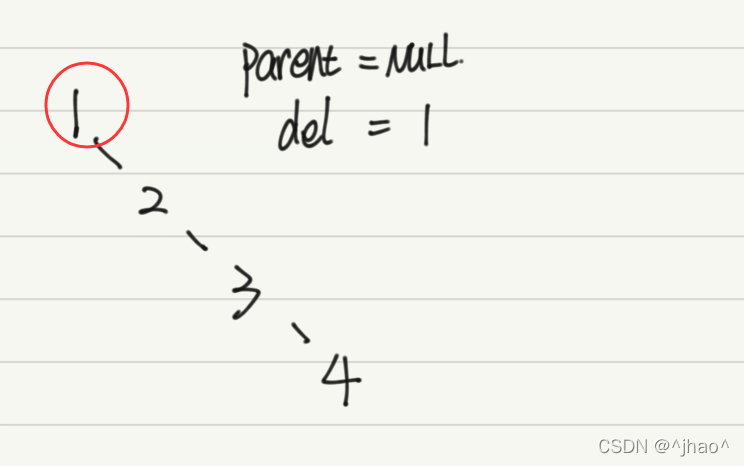 parent = NULL.
1
del = 1
2
3
4
CSDN @^jhao^